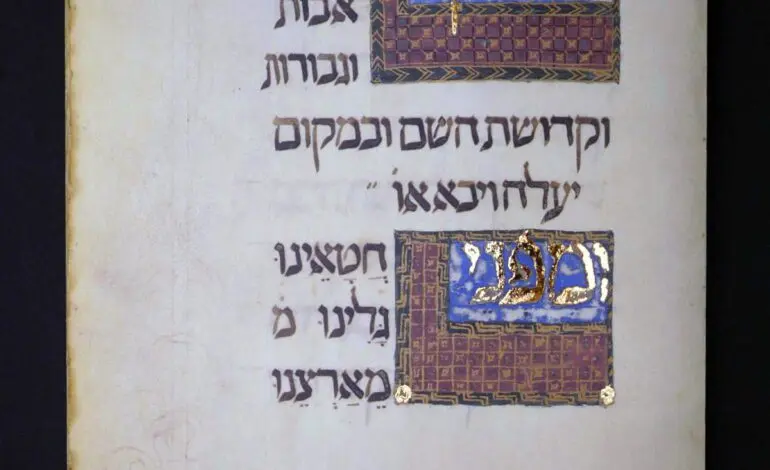 אבות
וגבורות
וקדושת השם ובמקום
יעלה ויבא או ״
ומפני חטאינו
גלינו מ
מארצנו